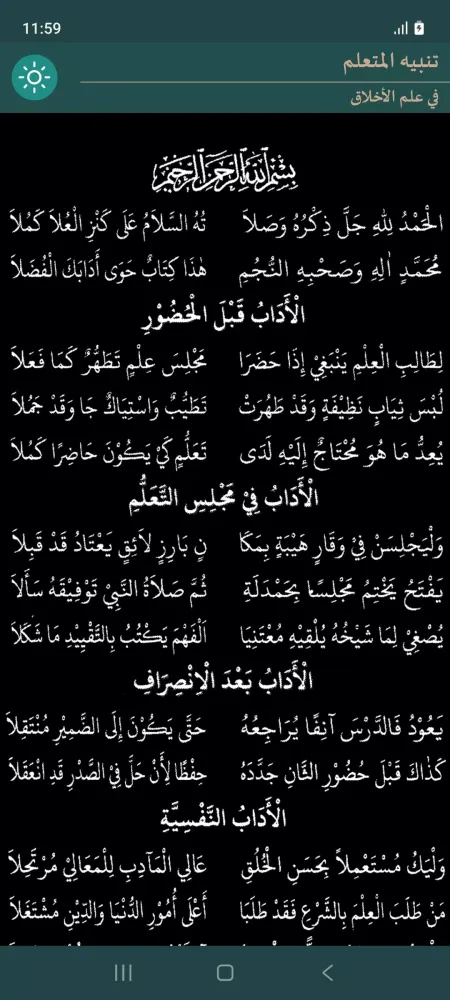 11:59
تنبيه المتعلم
في علم الأخلاق
بِسْمِ اللهِ الرَّحْمَنِ الرَّحِيْمِ
الْحَمْدُ لِلّٰهِ جَلَّ ذِكْرُهُ وَصَلاَ تُهُ السَّلاَمُ عَلَى كَنْزِ الْعُلاَ كَمُلاَ
مُحَمَّدٍ اٰلِهِ وَصَحْبِهِ النُّجُمِ هٰذَا كِتَابٌ حَوَى أَدَابَكَ الْفُضَلاَ
الْأَدَابُ قَبْلَ الْحُضُوْرِ
لِطَالِبِ الْعِلْمِ يَنْبَغِيْ إِذَا حَضَرَا مَجْلِسَ عِلْمٍ تَطَهُّرٌ كَمَا فَعَلاَ
لُبْسَ ثِيَابٍ نَظِيْفَةٍ وَقَدْ طَهُرَتْ تَطَيُّبٌ وَاسْتِيَاكٌ جَا وَقَدْ حَمُلاَ
يُعِدُّ مَا هُوَ مُحْتَاجٌ إِلَيْهِ لَدَى تَعَلُّمٍ كَيْ يَكُوْنَ حَاضِرًا كَمُلاَ
الْأَدَابُ فِيْ مَجْلِسِ التَّعَلُّمِ
وَلْيَجْلِسَنْ فِيْ وَقَارٍ هَيْبَةٍ بِمَكَا نٍ بَارِزٍ لاَئِقٍ يَعْتَادُ قَدْ قَبِلاَ
يَفْتَحُ يَخْتِمُ مَجْلِسًا بِحَمْدَلَةٍ ثُمَّ صَلاَةُ النَّبِيْ تَوْفِيْقَهُ سَأَلاَ
يُصْغِيْ لِمَا شَيْخُهُ يُلْقِيْهِ مُعْتَنِيَا اَلْفَهْمَ يَكْتُبُ بِالتَّقْيِيْدِ مَا شَكَلاَ
الْأَدَابُ بَعْدَ الْاِنْصِرَافِ
يَعُوْدُ فَالدَّرْسَ آنِفًا يُرَاجِعُهُ حَتَّى يَكُوْنَ إِلَى الضَّمِيْرِ مُنْتَقِلاَ
كَذَاكَ قَبْلَ حُضُوْرِ الثَّانِ جَدَّدَهُ حِفْظًا لِأَنْ حَلَّ فِيْ الصَّدْرِ قَدِ انْعَقَلاَ
الْأَدَابُ النَّفْسِيَّةِ
وَلْيَكُ مُسْتَعْمِلاً بِحَسَنِ الْخُلُقِ عَالِي الْمَآدِبِ لِلْمَعَالِيْ مُرْتَجِلاَ
مَنْ طَلَبَ الْعِلْمَ بِالشَّرْعِ فَقَدْ طَلَبَا أَعْلَى أُمُوْرِ الدُّنْيَا وَالدِّيْنِ مُشْتَغَلاَ